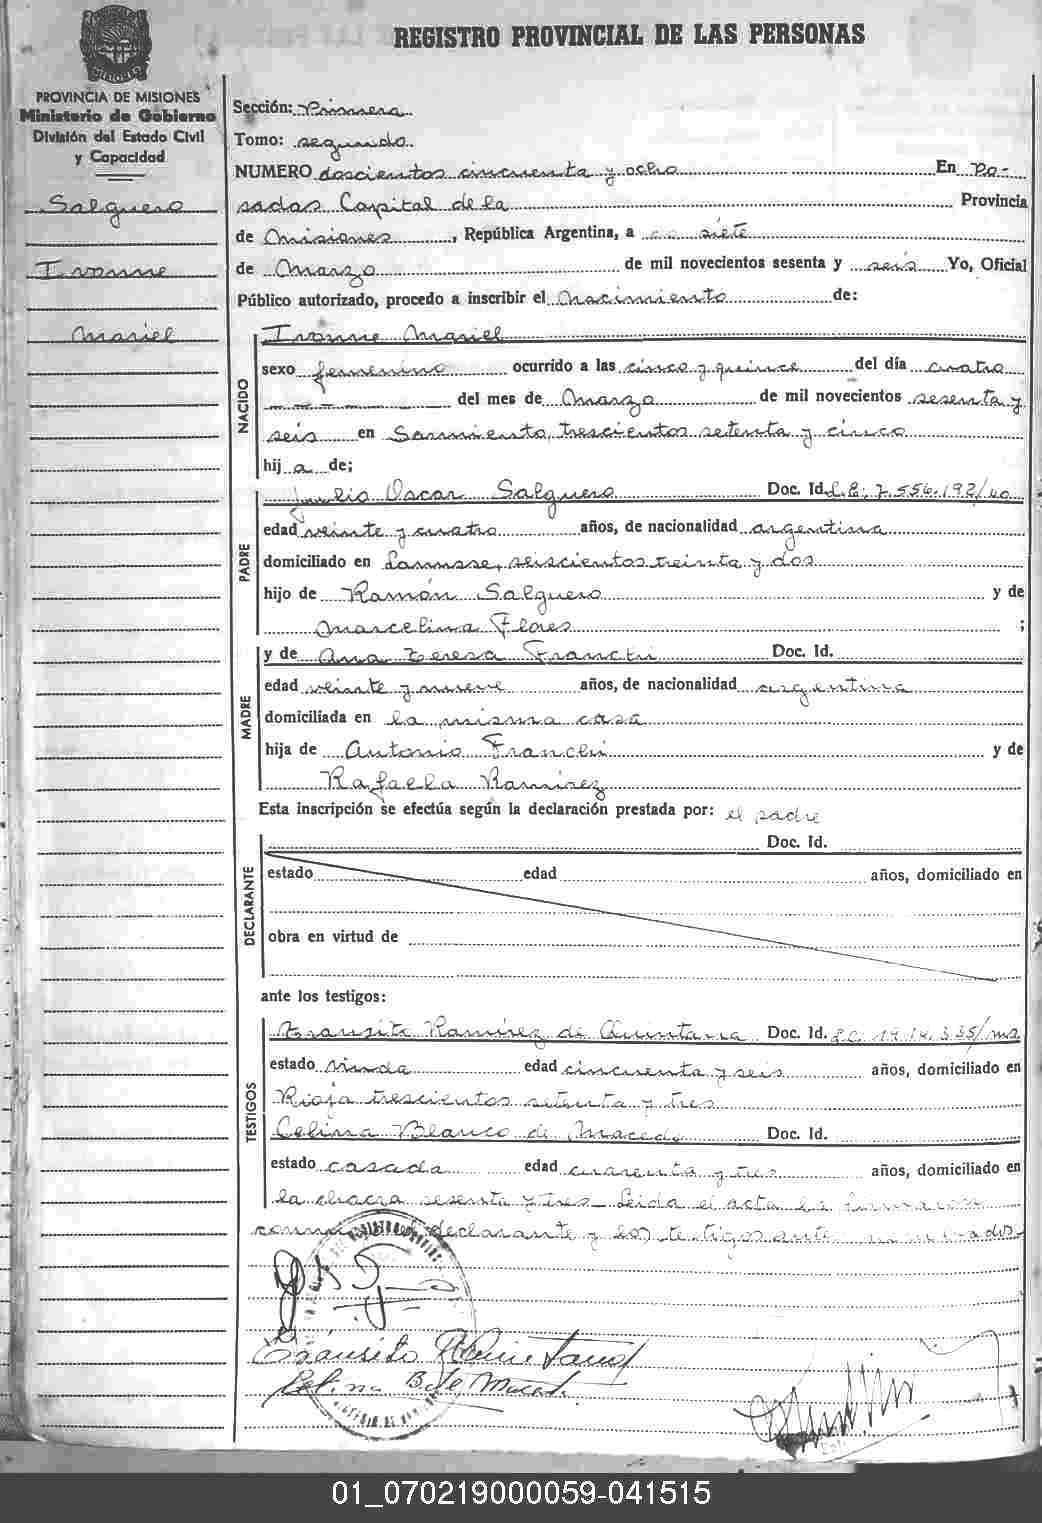 REGISTRO PROVINCIAL DE LAS PERSONAS
PROVINCIA DE MISIONES
Ministerio de Gobierno
División del Estado Civil
y Capacidad
Salguero
Ivonne
Mariel
Sección: Primera
Tomo: segundo
NUMERO doscientos cincuenta y ocho En Po-
sadas Capital de la Provincia
de Misiones, República Argentina, a siete
de Marzo de mil novecientos sesenta y seis Yo, Oficial
Público autorizado, procedo a inscribir el nacimiento de:
NACIDO
Ivonne Mariel
sexo femenino ocurrido a las cinco y quince del día cuatro
del mes de Marzo de mil novecientos sesenta y
seis en Sarmiento, trescientos setenta y cinco
hij a de;
PADRE
Julio Oscar Salguero Doc. Id. L.E: 7.556.192/40
edad veinte y cuatro años, de nacionalidad argentina
domiciliado en Lanusse, seiscientos treinta y dos
hijo de Ramón Salguero y de
Marcelina Flores ;
MADRE
y de Ana Teresa Franchi Doc. Id.
edad veinte y nueve años, de nacionalidad argentina
domiciliada en la misma casa
hija de Antonio Franchi y de
Rafaela Ramírez
Esta inscripción se efectúa según la declaración prestada por: el padre
DECLARANTE
Doc. Id.
estado edad años, domiciliado en
obra en virtud de
ante los testigos:
TESTIGOS
Transito Ramírez de Quintana Doc. Id. L.C. 1914.335/ms
estado viuda edad cincuenta y seis años, domiciliado en
Rioja trescientos setenta y tres
Celina Blanco de Macedo Doc. Id.
estado casada edad cuarenta y tres años, domiciliado en
la chacra sesenta y tres. Leida el acta la firmaron
conmigo el declarante y los testigos ante nombrados
Tránsito R de Quintana
Celina B de Maced.
01_070219000059-041515